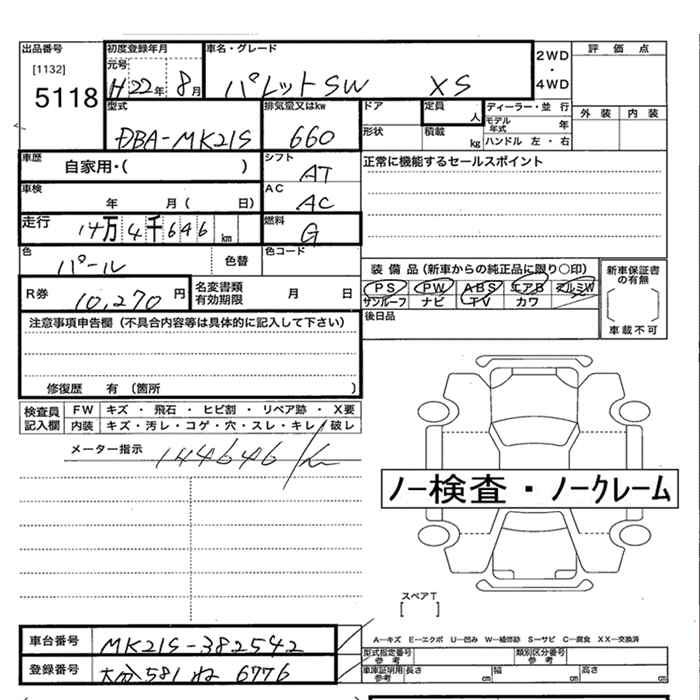 出品番号
[1132]
5118
初度登録年月
元号
H 22年 8月
車名・グレード
パレットSW XS
2WD
・
4WD
評価点
外装 内装
型式
DBA-MK21S
排気量又はkw
660
ドア
形状
定員 人
積載 kg
ディーラー・並 行
モデル年式 年
ハンドル 左・右
車歴
自家用・( )
シフト
AT
正常に機能するセールスポイント
車検
年 月( 日)
AC
AC
走行
14万4千646km
燃料
G
色
パール
色替
色コード
R券
10,270円
名変書類
有効期限
月 日
装備品(新車からの純正品に限り〇印)
PS PW ABS エアB アルミW
サンルーフ ナビ TV カワ
新車保証書
の有無
車載不可
後日品
注意事項申告欄(不具合内容等は具体的に記入して下さい)
修復歴 有 (箇所 )
検査員
記入欄
FW キズ・飛石・ヒビ割・リペア跡・X要
内装 キズ・汚レ・コゲ・穴・スレ・キレ・破レ
メーター指示
144646 km
ノー検査・ノークレーム
スペアT
[ ]
A―キズ E―エクボ U―凹み W―補修跡 S―サビ C―腐食 XX―交換済
車台番号
MK21S-382542
登録番号
大分581 ね 6776
型式指定番号
参考
類別区分番号
参考
車庫証明用
参考
長さ cm
幅 cm
高さ cm